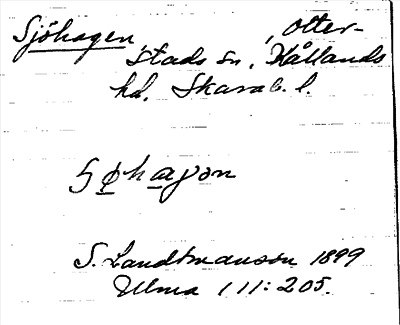 Sjöhagen, Otter-
stads sn, Kållands
hd, Skarab. l.
Søhagon
S. Landtmanson 1899
Ulma 111:205.